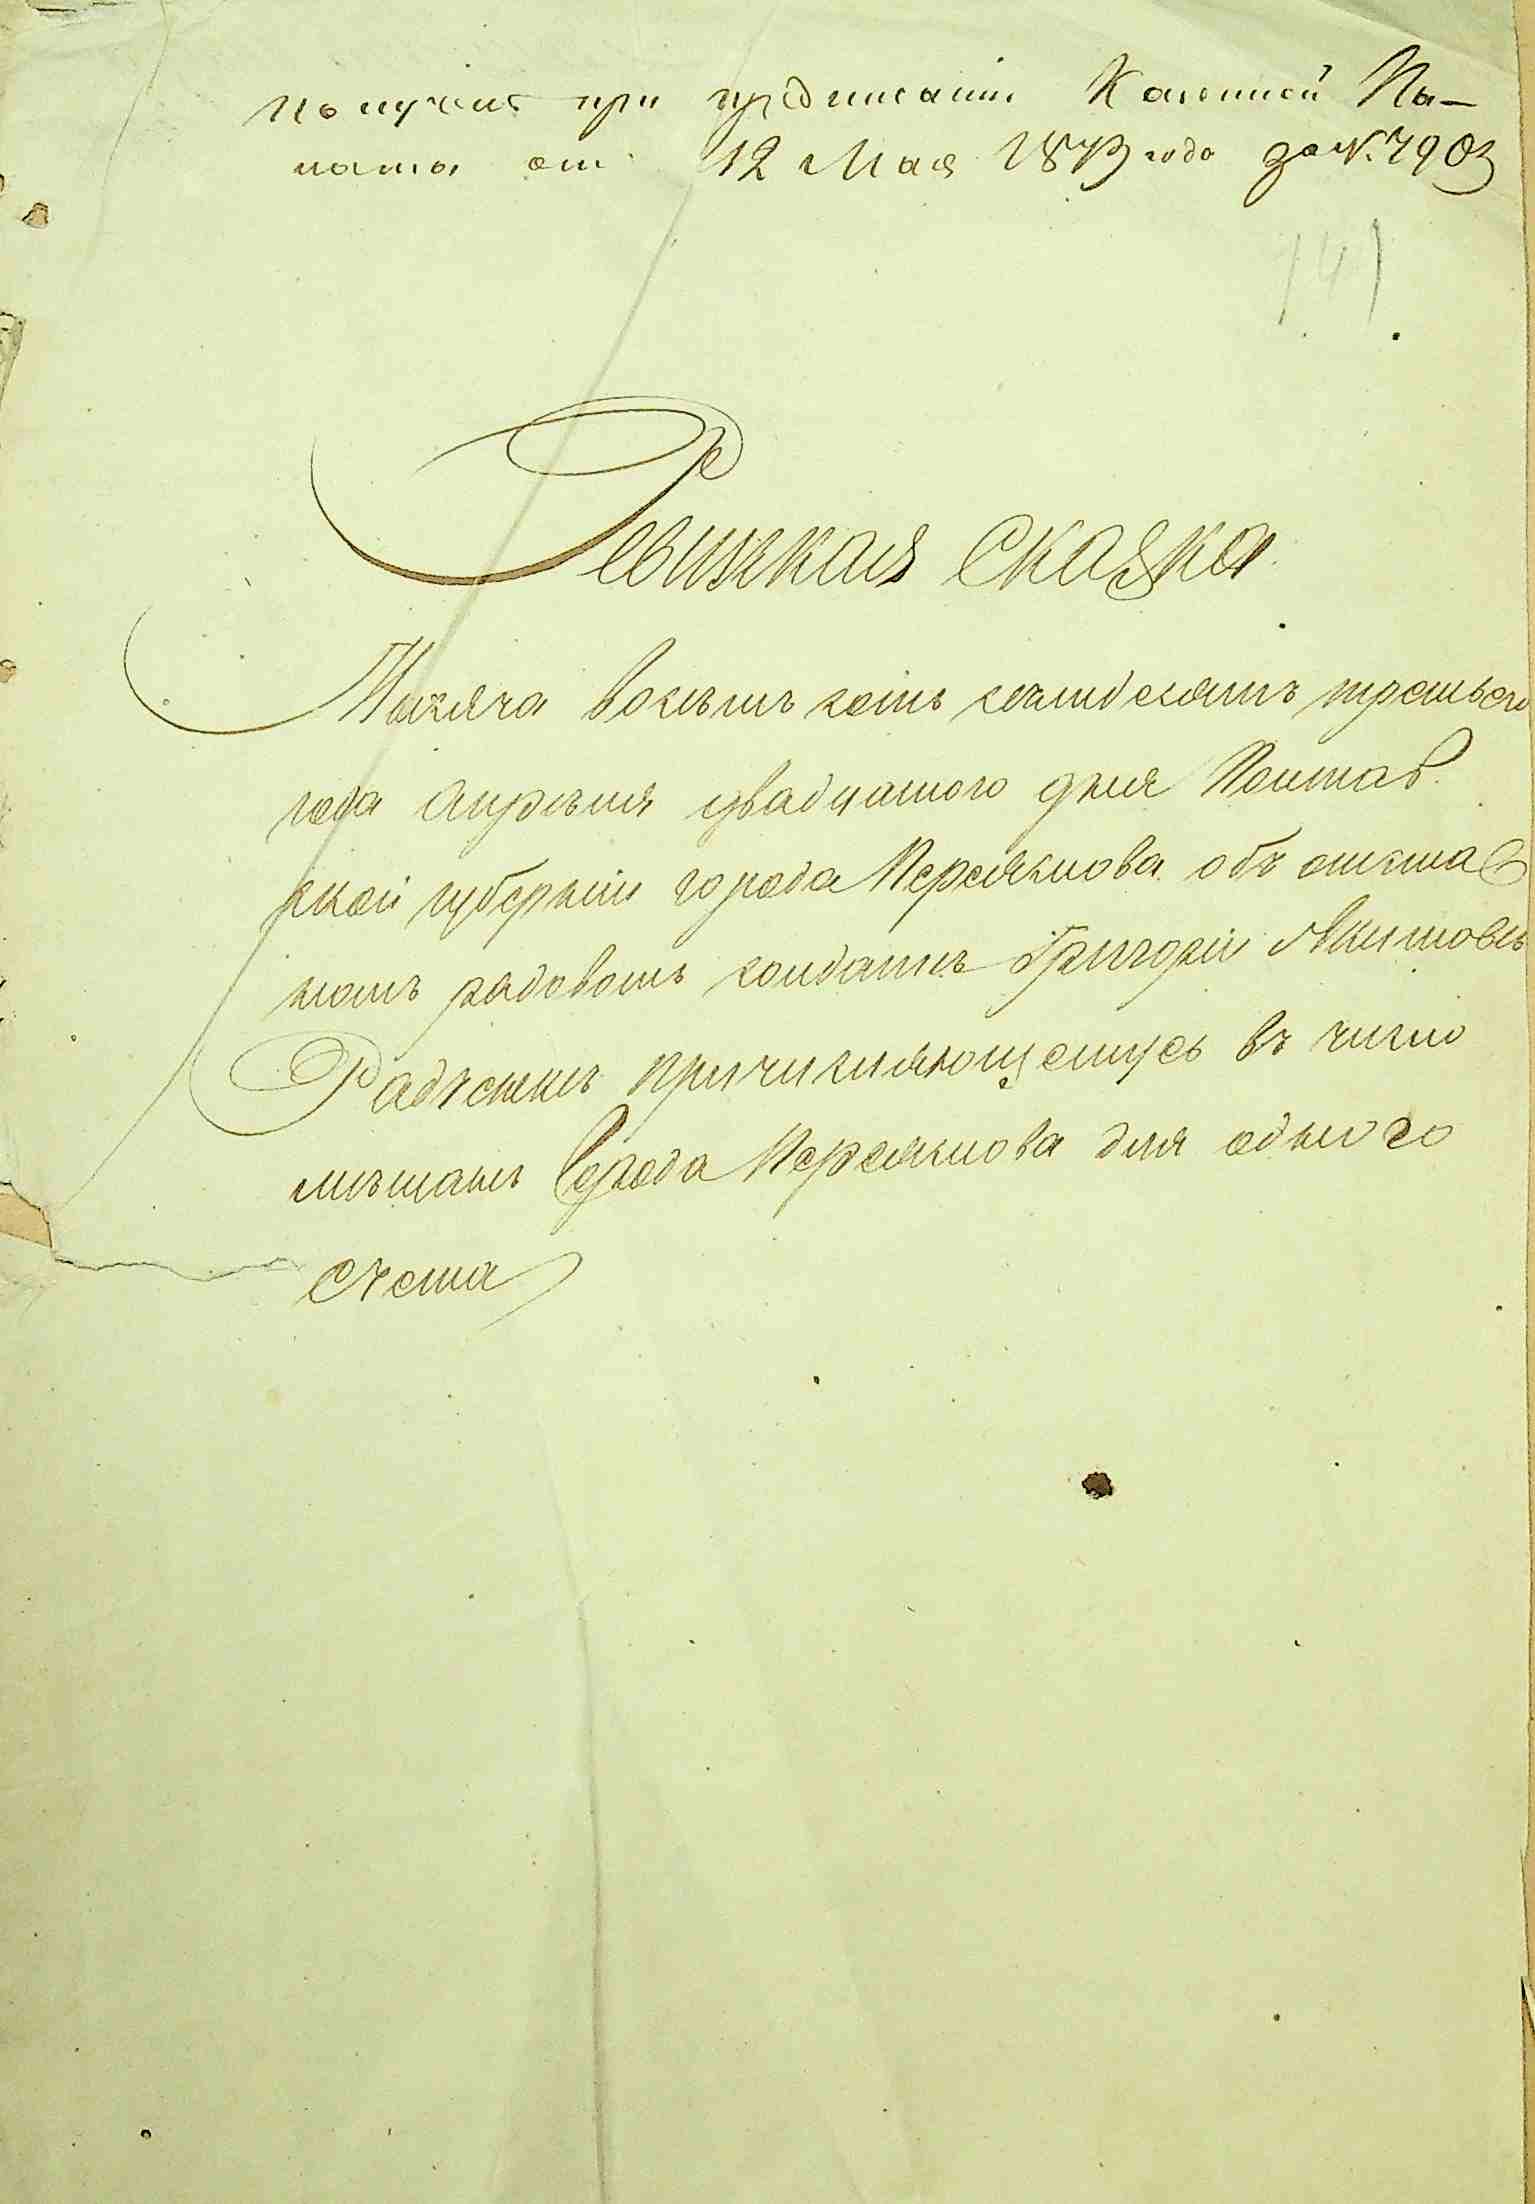 получена при предписании Казенной Па-
латы от 12 Мая 1873 года за №. 7903
141
Ревизская сказка
Тысяча восемъ сотъ семидесятъ третьего
года Апреля двадцатого дня Полтав.
ской губерніи города Переяслова объ отстав
номъ рядовомъ солдатъ Григорій Якимовъ
причисляющемусь въ число
мещанъ Города Переяслова для одного
счета